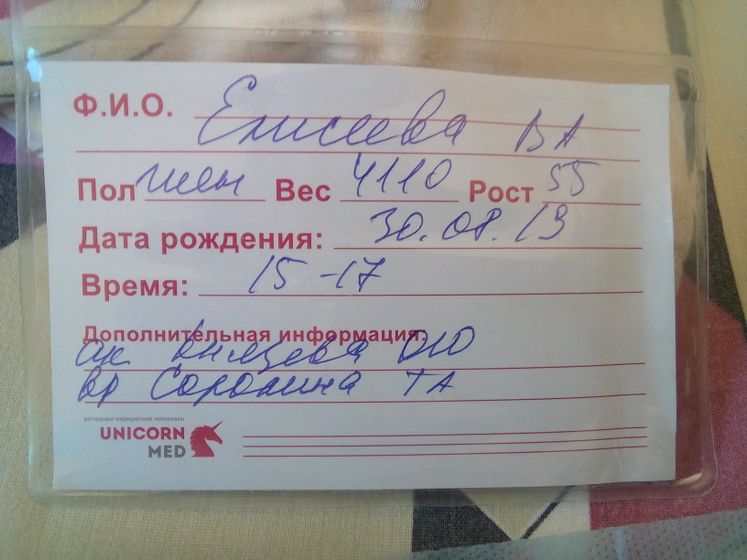 Ф.И.О. Елисеева ВА
Пол жен Вес 4110 Рост 55
Дата рождения: 30.08.19
Время: 15-17
Дополнительная информация:
ак Князева ОЮ
вр Сорокина ТА
расходные медицинские материалы
UNICORN
MED